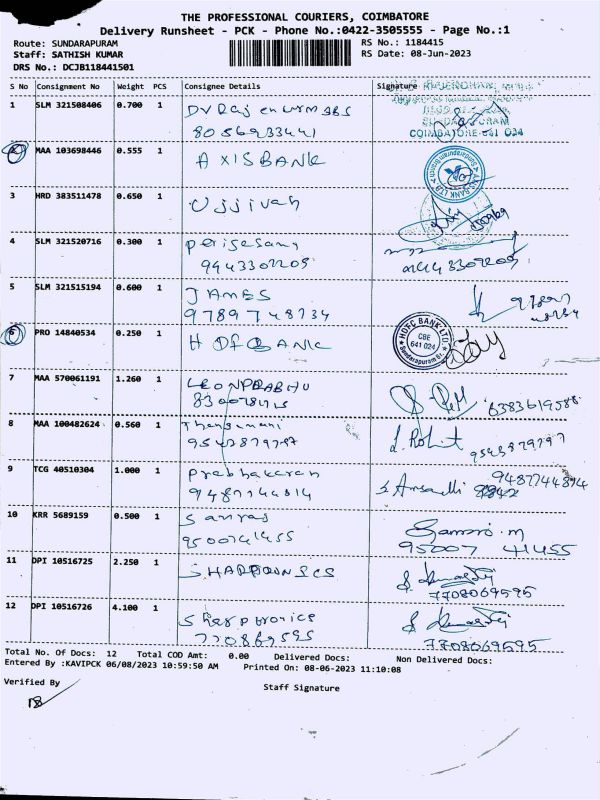 THE PROFESSIONAL COURIERS, COIMBATORE
Delivery Runsheet - PCK - Phone No.:0422-3505555 - Page No.:1
Route: SUNDARAPURAM
RS No.: 1184415
Staff: SATHISH KUMAR
RS Date: 08-Jun-2023
DRS No.: DCJB118441501
S No Consignment No Weight PCS Consignee Details Signature
COIMBATORE-641 024
1 SLM 321508406 0.700 1
8056933441
2 MAA 103698446 0.555 1 AXIS BANK
3 HRD 383511478 0.650 1 Ujjivah
4 SLM 321520716 0.300 1
9943302205
5 SLM 321515194 0.600 1 JAMES
9789748734
6 PRO 14840534 0.250 1 HDFC BANK
HDFC BANK LTD
CBE
641 024
Sundarapuram Br.
7 MAA 570061191 1.260 1 LEONPRABHU
8383619588
8 MAA 100482624 0.560 1 Thensimani
9543879797 9543879797
9 TCG 40510304 1.000 1 Prabhakaran
9487744814 9487744814
10 KRR 5689159 0.500 1
9500741455 95007 41455
11 DPI 10516725 2.250 1
7708069595
12 DPI 10516726 4.100 1
770869595 7708069595
Total No. Of Docs: 12 Total COD Amt: 0.00 Delivered Docs: Non Delivered Docs:
Entered By :KAVIPCK 06/08/2023 10:59:50 AM Printed On: 08-06-2023 11:10:08
Verified By
Staff Signature